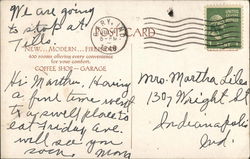 We are going
to stop at
this
POST CARD
NEW... MODERN...
400 rooms offering every convenience
for your comfort.
COFFEE SHOP—GARAGE
Hi Martha, Having
a fine time went
to a swell place to
eat Friday are.
will see you
soon Mom
Mrs. Martha Liles
1307 Wright St
Indianapolis
Ind.